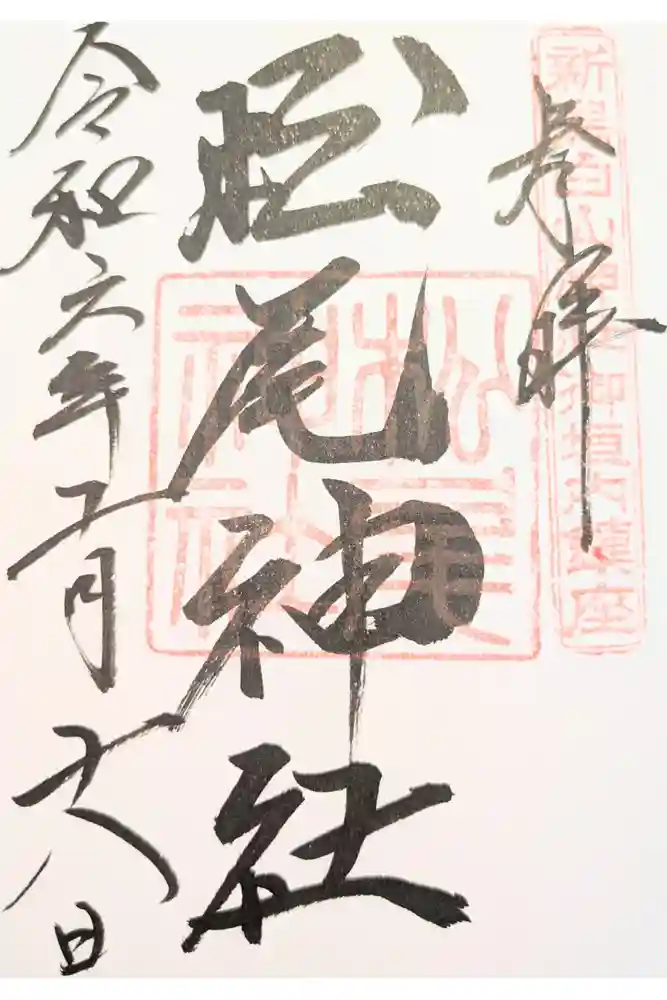 奉拝
新潟白山神社御境内鎮座
松尾神社
松尾神社
令和六年二月十八日